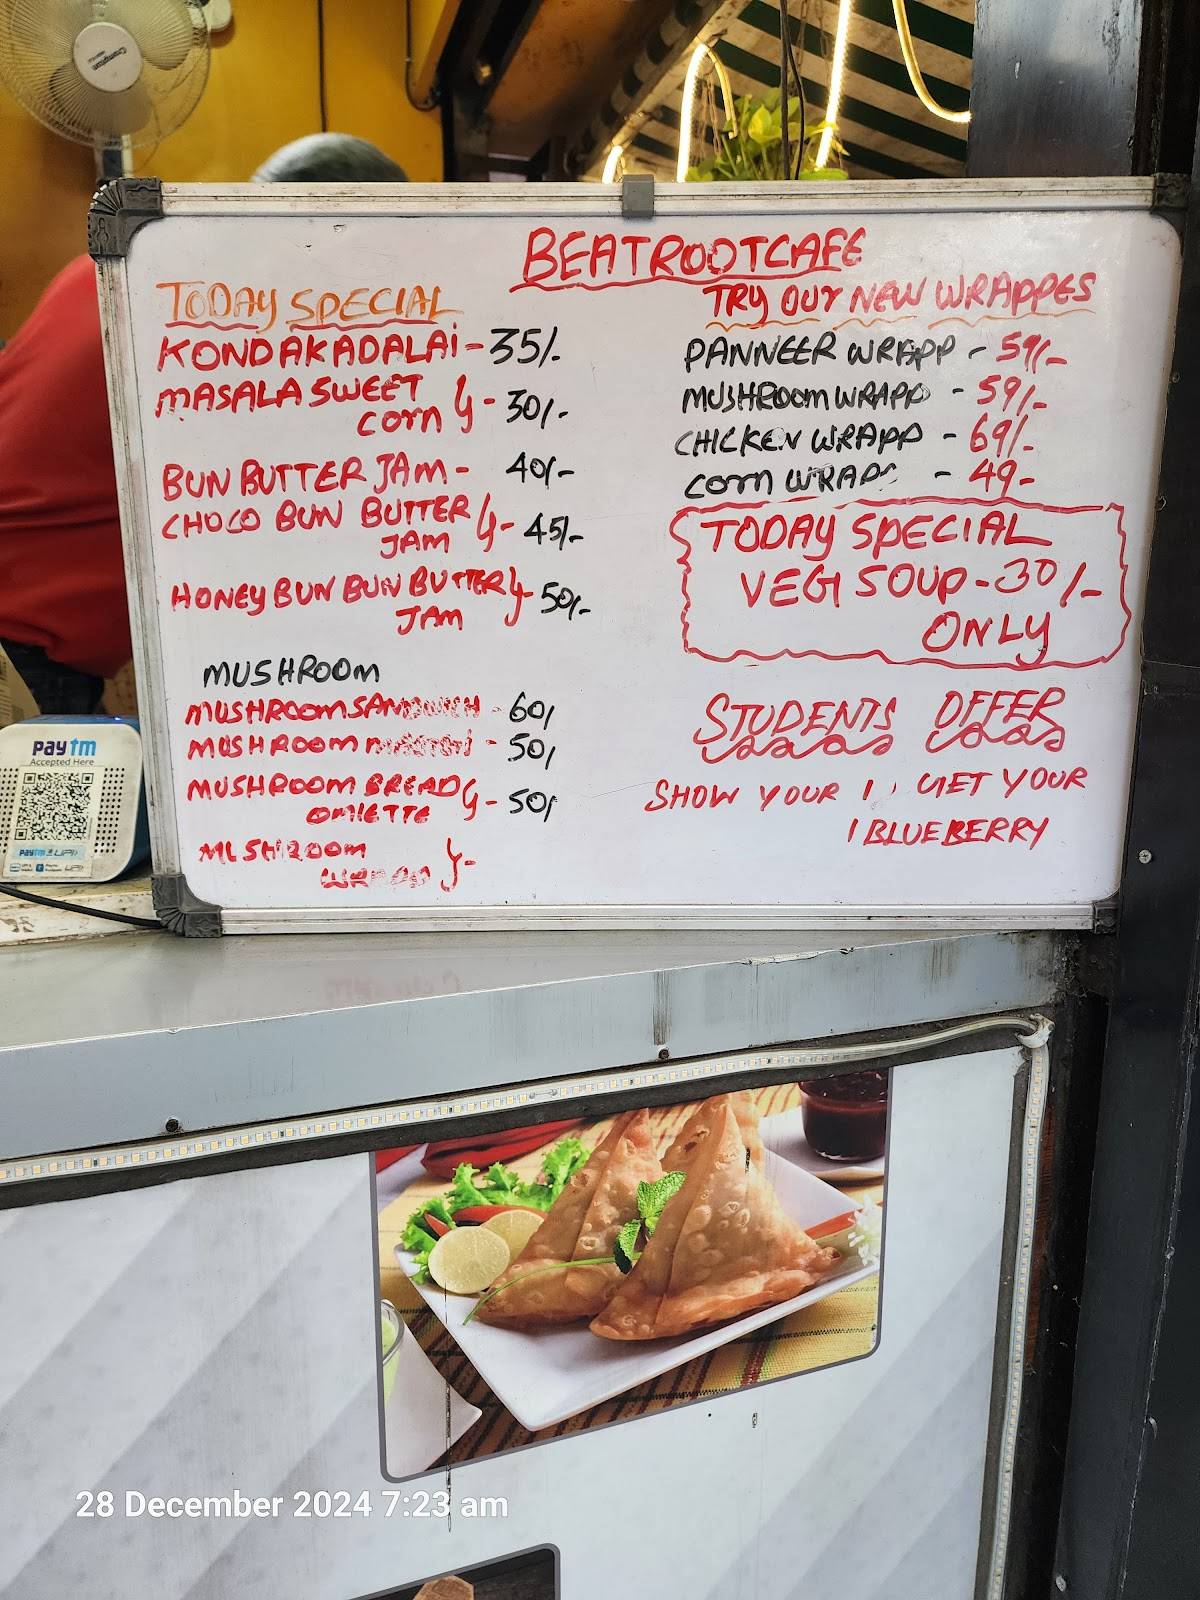 Crompton
BEATROOTCAFE
TODAY SPECIAL
KONDAKADALAi - 35/-
MASALA SWEET
corn } - 30/-
BUN BUTTER JAM - 40/-
CHOCO BUN BUTTER
JAM } - 45/-
HONEY BUN BUN BUTTER
JAM } - 50/-
MUSHROOM
MUSHROOM SANDWICH - 60/
MUSHROOM - 50/
MUSHROOM BREAD
OMLETTE } - 50/
MUSHROOM
WRAPP } -
TRY OUR NEW WRAPPES
PANNEER WRAPP - 59/-
MUSHROOM WRAPP - 59/-
CHICKEN WRAPP - 69/-
corn WRAP - 49-
TODAY SPECIAL
VEGI SOUP - 30/-
ONLY
STUDENTS OFFER
SHOW YOUR I , GET YOUR
1 BLUEBERRY
paytm
Accepted Here
paytm UPI
28 December 2024 7:23 am